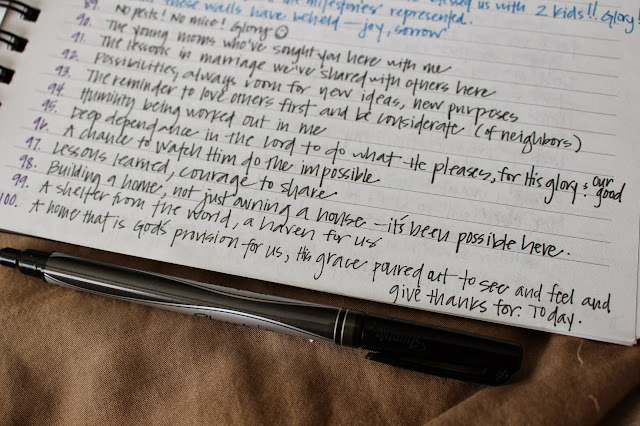 blessed us with 2 kids!! Glory
milestones represented.
these walls have beheld — joy, sorrow
89. No pests! No mice! Glory ☺
90. The young moms who've sought you here with me
91. The lessons in marriage we've shared with others here
92. Possibilities, always room for new ideas, new purposes
93. The reminder to love others first and be considerate (of neighbors)
94. Humility being worked out in me
95. Deep dependance in the Lord to do what He pleases, for His glory & our good
96. A chance to watch Him do the impossible
97. Lessons learned, courage to share
98. Building a home, not just owning a house — it's been possible here.
99. A shelter from the world, a haven for us
100. A home that is God's provision for us, His grace poured out to see and feel and
give thanks for. Today.